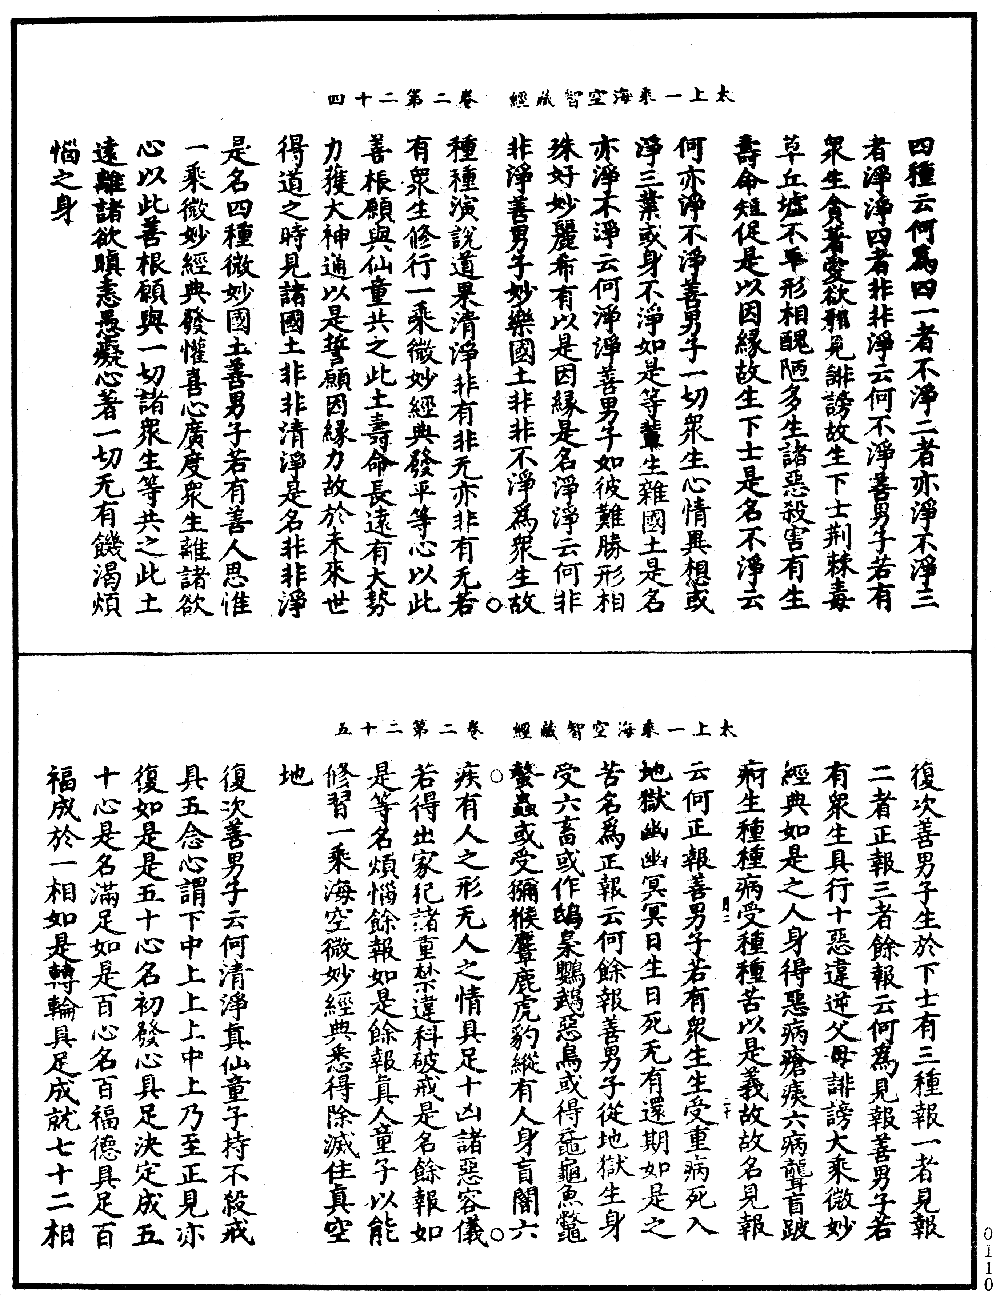 太上一乘海空智藏經　卷二第二十四
四種云何爲四一者不淨二者亦淨不淨三
者淨淨四者非非淨云何不淨善男子若有
衆生貪著愛欲邪見誹謗故生下士荆棘毒
草丘墟不平形相醜陋多生諸惡殺害有生
壽命短促是以因緣故生下士是名不淨云
何亦淨不淨善男子一切衆生心情異想或
淨三業或身不淨如是等輩生雜國土是名
亦淨不淨云何淨淨善男子如彼難勝形相
殊好妙麗希有以是因緣是名淨淨云何非
非淨善男子妙樂國土非非不淨爲衆生故
種種演說道果清淨非有非无亦非有无若
有衆生修行一乘微妙經典發平等心以此
善根願與仙童共之此土壽命長遠有大勢
力獲大神通以是誓願因緣力故於未來世
得道之時見諸國土非非清淨是名非非淨
是名四種微妙國土善男子若有善人思惟
一乘微妙經典發懽喜心廣度衆生離諸欲
心以此善根願與一切諸衆生等共之此土
遠離諸欲瞋恚愚癡心著一切无有饑渴煩
惱之身
太上一乘海空智藏經　卷二第二十五
復次善男子生於下士有三種報一者見報
二者正報三者餘報云何爲見報善男子若
有衆生具行十惡違逆父母誹謗大乘微妙
經典如是之人身得惡病瘡痍六病聾盲跛
痾生種種病受種種苦以是義故故名見報
云何正報善男子若有衆生生受重病死入
地獄幽幽冥冥日生日死无有還期如是之
苦名爲正報云何餘報善男子從地獄生身
受六畜或作鴟梟鸚鵡惡鳥或得黿龜魚鼈
螯蟲或受獼猴麞鹿虎豹縱有人身盲闇六
疾有人之形无人之情具足十凶諸惡容儀
若得出家犯諸重禁違科破戒是名餘報如
是等名煩惱餘報如是餘報眞人童子以能
修習一乘海空微妙經典悉得除滅住眞空
地
復次善男子云何清淨真仙童子持不殺戒
具五念心謂下中上上上中上乃至正見亦
復如是是五十心名初發心具足決定成五
十心是名滿足如是百心名百福德具足百
福成於一相如是轉輪具足成就七十二相
0110